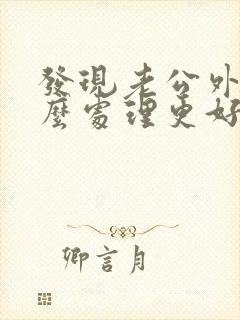 發現老公外
麼處理更好
卿言月